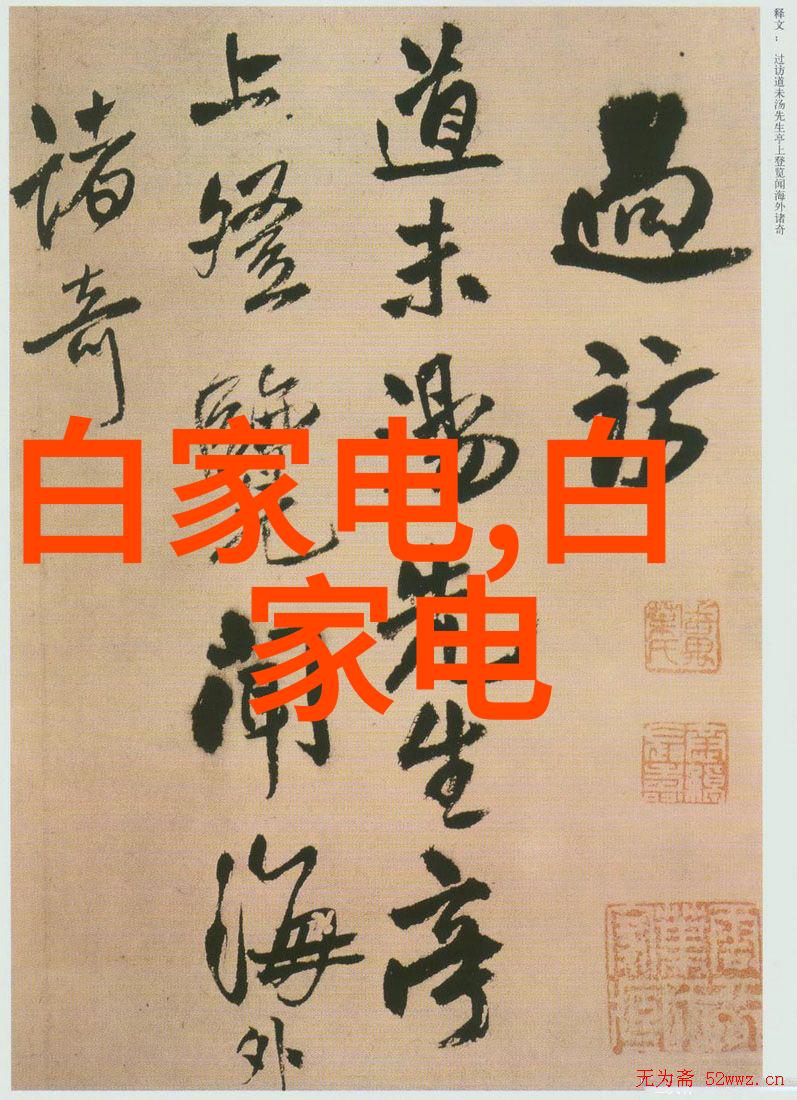 释文： 过访道未汤先生亭上登览闻海外诸奇
過訪
道未湯先生亭
上登覽聞海外
諸奇
白家电,白
家电
无为斋 52wwz.cn